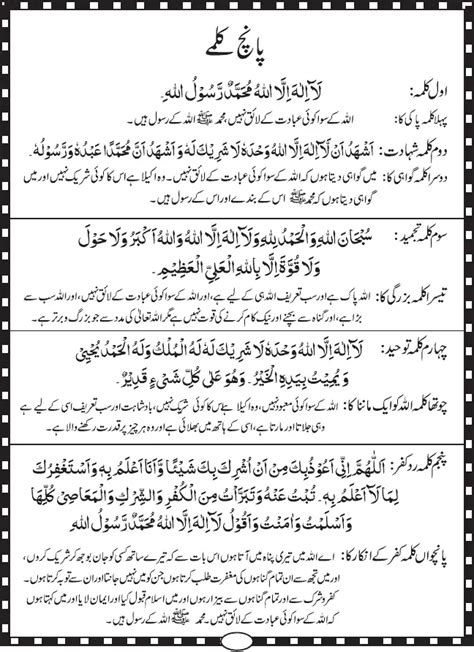 پانچ کلمے
اول کلمہ: لَآ اِلٰهَ اِلَّا اللهُ مُحَمَّدٌ رَّسُوْلُ اللهِ.
پہلا کلمہ پاکی کا: اللہ کے سوا کوئی عبادت کے لائق نہیں، محمد ﷺ اللہ کے رسول ہیں۔
دوم کلمہ شہادت: اَشْهَدُ اَنْ لَّآ اِلٰهَ اِلَّا اللهُ وَحْدَهٗ لَا شَرِيْكَ لَهٗ وَاَشْهَدُ اَنَّ مُحَمَّدًا عَبْدُهٗ وَرَسُوْلُهٗ.
دوسرا کلمہ گواہی کا: میں گواہی دیتا ہوں کہ اللہ کے سوا کوئی عبادت کے لائق نہیں۔ وہ اکیلا ہے اس کا کوئی شریک نہیں اور میں
گواہی دیتا ہوں کہ محمد ﷺ اس کے بندے اور اس کے رسول ہیں۔
سوم کلمہ تمجید: سُبْحَانَ اللهِ وَالْحَمْدُ لِلّٰهِ وَلَآ اِلٰهَ اِلَّا اللهُ وَاللهُ اَكْبَرُ وَلَا حَوْلَ
وَلَا قُوَّةَ اِلَّا بِاللهِ الْعَلِيِّ الْعَظِيْمِ.
تیسرا کلمہ بزرگی کا: اللہ پاک ہے اور سب تعریف اللہ ہی کے لیے ہے، اور اللہ کے سوا کوئی عبادت کے لائق نہیں، اور اللہ سب سے
بڑا ہے، اور گناہ سے بچنے اور نیک کام کرنے کی قوت نہیں ہے مگر اللہ تعالیٰ کی مدد سے جو بزرگ و برتر ہے۔
چہارم کلمہ توحید: لَآ اِلٰهَ اِلَّا اللهُ وَحْدَهٗ لَا شَرِيْكَ لَهٗ لَهُ الْمُلْكُ وَلَهُ الْحَمْدُ يُحْيِيْ
وَ يُمِيْتُ بِيَدِهِ الْخَيْرُ. وَهُوَ عَلٰى كُلِّ شَيْءٍ قَدِيْرٌ.
چوتھا کلمہ اللہ کو ایک ماننا کا: اللہ کے سوا کوئی معبود نہیں، وہ اکیلا ہے اس کا کوئی شریک نہیں، بادشاہت اور سب تعریف اسی کے لیے ہے
وہی جلاتا اور مارتا ہے، اسی کے ہاتھ میں بھلائی ہے اور وہ ہر چیز پر قدرت رکھنے والا ہے۔
پنجم کلمہ رد کفر: اَللّٰهُمَّ اِنِّيْ اَعُوْذُبِكَ مِنْ اَنْ اُشْرِكَ بِكَ شَيْئًا وَّاَنَا اَعْلَمُ بِهٖ وَاَسْتَغْفِرُكَ
لِمَا لَآ اَعْلَمُ بِهٖ. تُبْتُ عَنْهُ وَتَبَرَّأْتُ مِنَ الْكُفْرِ وَالشِّرْكِ وَالْمَعَاصِيْ كُلِّهَا
وَاَسْلَمْتُ وَاٰمَنْتُ وَاَقُوْلُ لَآ اِلٰهَ اِلَّا اللهُ مُحَمَّدٌ رَّسُوْلُ اللهِ
پانچواں کلمہ کفر کے انکار کا: اے اللہ میں تیری پناہ میں آتا ہوں اس بات سے کہ تیرے ساتھ کسی کو جان بوجھ کر شریک کروں،
اور میں تجھ سے ان تمام گناہوں کی مغفرت طلب کرتا ہوں جن کو میں نہیں جانتا اور ان سے توبہ کرتا ہوں۔
کفر و شرک سے اور تمام گناہوں سے بیزار ہوں اور میں اسلام قبول کیا اور ایمان لایا اور میں کہتا ہوں
کہ اللہ کے سوا کوئی عبادت کے لائق نہیں۔ محمد ﷺ اللہ کے رسول ہیں۔